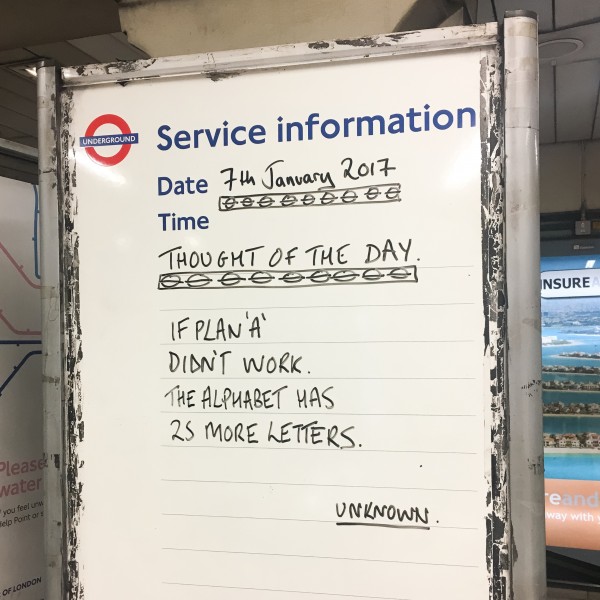 UNDERGROUND
Service information
Date 7th January 2017
Time
THOUGHT OF THE DAY.
IF PLAN 'A'
DIDN'T WORK.
THE ALPHABET HAS
25 MORE LETTERS.
UNKNOWN.
Please
water
you feel
Help Point or
OF LONDON
INSURE
eand
way with